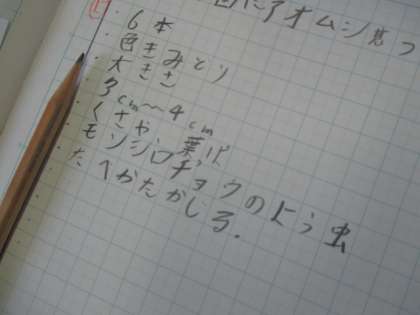 アオムシ見つ
・6本
・色きみどり
・大きさ
3cm～4cm
・くさや葉っぱ
・モンシロチョウのよう虫
・たべかたかじる.